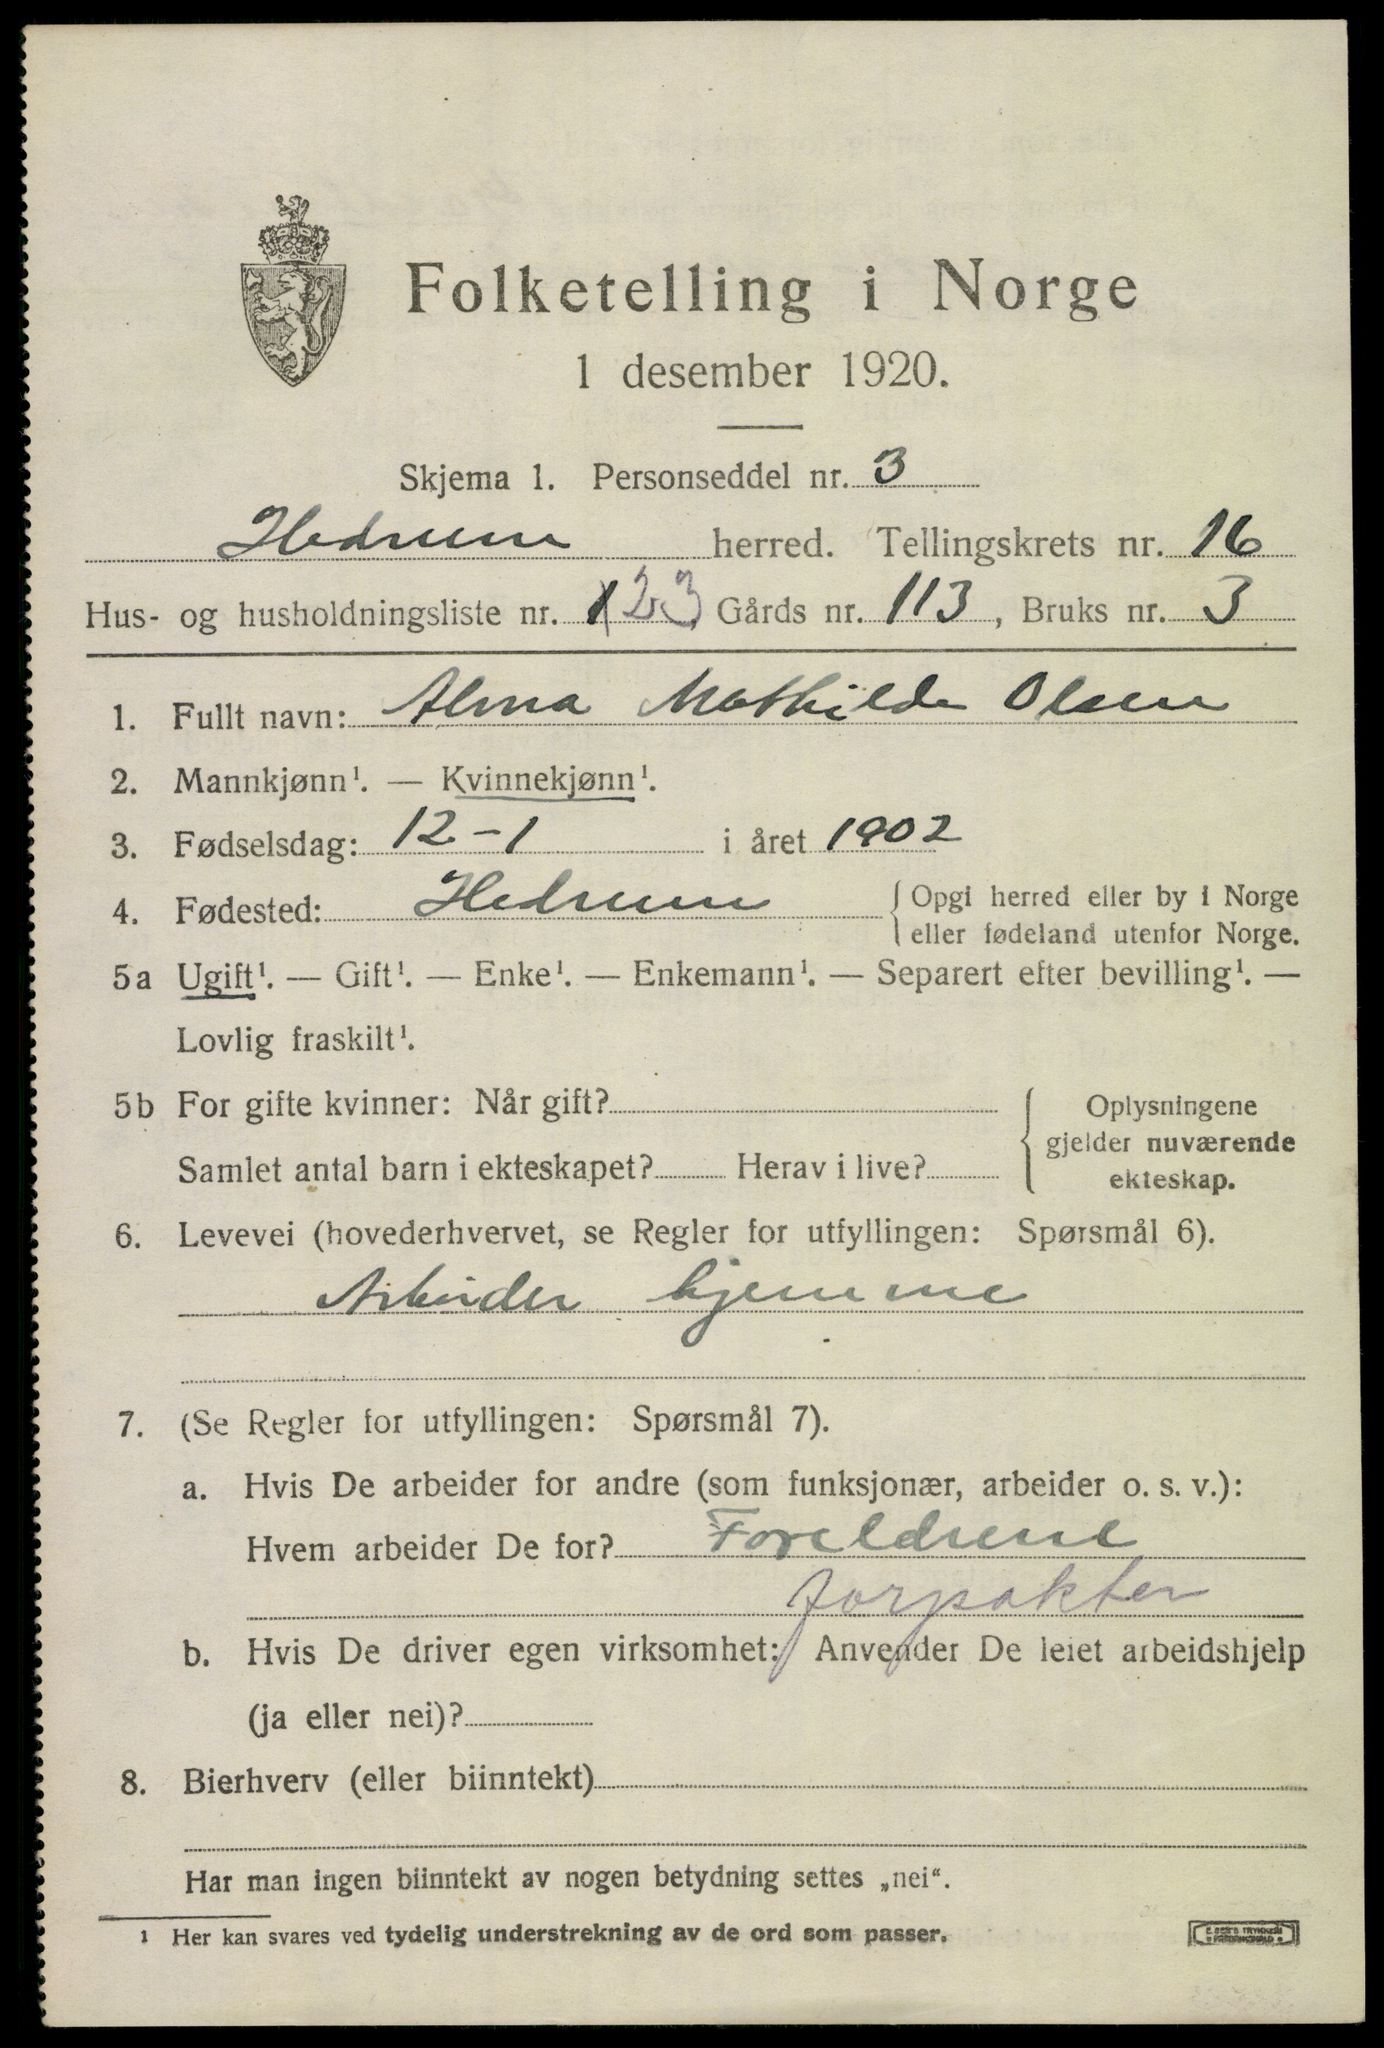 Folketelling i Norge
1 desember 1920.
Skjema 1. Personseddel nr. 3
Hedrum herred. Tellingskrets nr. 16
Hus- og husholdningsliste nr. 1 23 Gårds nr. 113, Bruks nr. 3
1. Fullt navn: Alma Mathilde Olsen
2. Mannkjønn¹. — Kvinnekjønn¹.
3. Fødselsdag: 12-1 i året 1902
4. Fødested: Hedrum { Opgi herred eller by i Norge
eller fødeland utenfor Norge.
5a Ugift¹. — Gift¹. — Enke¹. — Enkemann¹. — Separert efter bevilling¹. —
Lovlig fraskilt¹.
5b For gifte kvinner: Når gift? Oplysningene
gjelder nuværende
Samlet antal barn i ekteskapet? Herav i live? ekteskap.
6. Levevei (hovederhvervet, se Regler for utfyllingen: Spørsmål 6).
Arbeider hjemme
7. (Se Regler for utfyllingen: Spørsmål 7).
a. Hvis De arbeider for andre (som funksjonær, arbeider o. s. v.):
Hvem arbeider De for? Foreldrene
forpakter
b. Hvis De driver egen virksomhet: Anvender De leiet arbeidshjelp
(ja eller nei)?
8. Bierhverv (eller biinntekt)
Har man ingen biinntekt av nogen betydning settes „nei“.
¹ Her kan svares ved tydelig understrekning av de ord som passer.